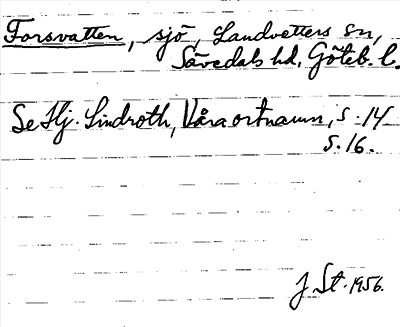 Forsvatten, sjö, Landvetters sn,
Sävedals hd, Göteb. l.
Se Hj. Lindroth, Våra ortnamn, s. 14
s. 16.
J. St. 1956.